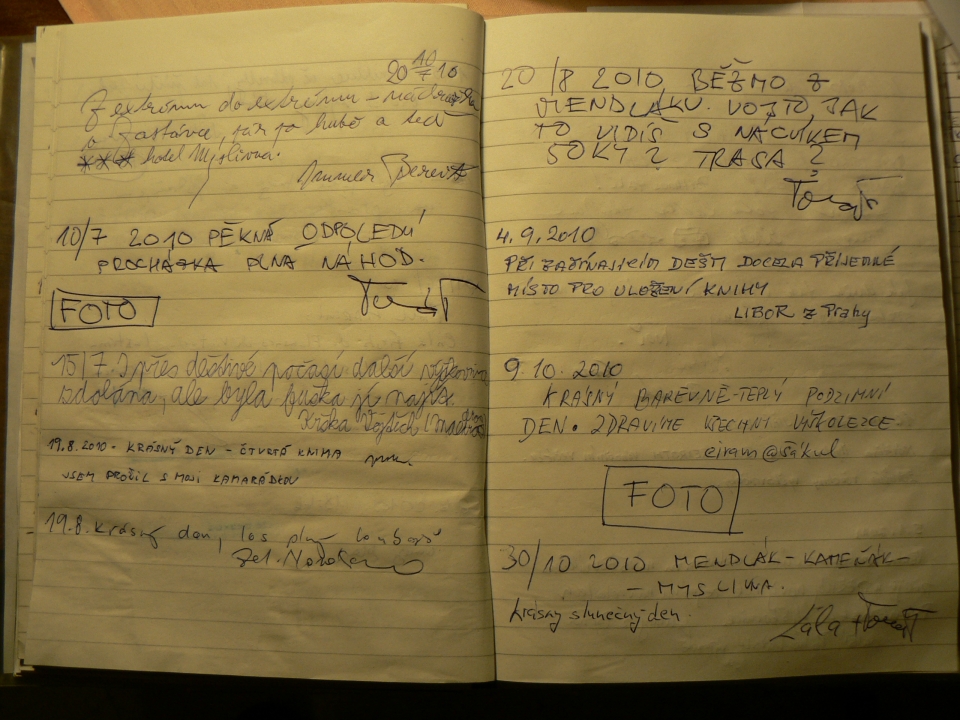 20 10/7 10
Z extrému do extrému –
a Zastávce, a teď
hotel Myslivna.
10/7 2010 PĚKNÁ ODPOLEDNÍ
PROCHÁZKA PLNÁ NÁHOD.
FOTO
15/7. I přes deštivé počasí další
zdolána, ale byla fuška jí najít.
Krška Vojtěch
19.8.2010 - KRÁSNÝ DEN - ČTVRTÁ KNIHA
JSEM PROŽIL S MOJÍ KAMARÁDKOU
19.8. Krásný den, les plný
20/8 2010 BĚŽMO Z
MENDLÁKU. VOJTO, JAK
TO VIDÍŠ S NÁCVIKEM
50KY? TRASA?
Tomáš
4.9.2010
PŘI ZAČÍNAJÍCÍM DEŠTI DOCELA PŘÍJEMNÉ
MÍSTO PRO ULOŽENÍ KNIHY
LIBOR z Prahy
9.10.2010
KRÁSNÝ BAREVNĚ-TEPLÝ PODZIMNÍ
DEN. ZDRAVÍME VŠECHNY VÝKOLEZCE-
eiram@šákul
FOTO
30/10 2010 MENDLÁK-KAMEŇÁK-
- MYSLIVNA.
krásný slunečný den.
Lála + Tomáš